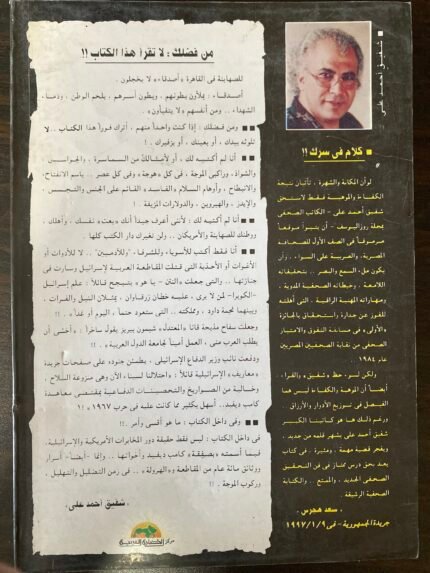 شفيق أحمد على
من فضلك : لا تقرأ هذا الكتاب !!
للصهاينة فى القاهرة «أصدقاء» لا يخجلون .
أصدقاء : يملأون بطونهم ، وبطون أسرهم ، بلحم الوطن ، ودماء
الشهداء .. ومن أنفسهم «لا يتقيأون» .
ومن فضلك : إذا كنت واحداً منهم ، أترك فوراً هذا الكتاب .. لا
تلوثه بيدك ، أو بعينك ، أو بزفيرك . !
أنا لم أكتبه لك ، أو لأمثالك من السماسرة ، والجواسيس ،
والشواذ ، وراكبى الموجة ، فى كل «هوجة» وفى كل عصر .. باسم الانفتاح ،
والانبطاح ، وأوهام السلام «الفاسد» القائم على الجنس والتجسس ،
والإيدز ، والهيروين ، والدولارات المزيفة . !
أنا لم أكتبه لك : لأننى أعرف جيداً أنك «بعت» نفسك ، وأهلك ،
ووطنك للصهاينة والأمريكان .. ولن تغيرك دار الكتب كلها .
أنا فقط أكتب للأسوياء، وللشرفاء «وللآدميين» .. لا للأدوات أو
الأغوات أو الأحذية التى قتلت المقاطعة العربية لإسرائيل وسارت فى
جنازتها .. والتى جعلت «النتن - يا هو» يتبجح قائلاً : علم إسرائيل
«الكوبرا» لمن لا يرى ، عليه خطان زرقاوان ، يمثلان النيل والفرات ،
وبينهما نجمة داود ، ومملكته .. التى ستعود حتماً ، اليوم أو غداً .. !!
وجعلت سفاح مذبحة قانا و«المعتدل» شيمون بيريز يقول ساخراً : « أخشى أن
يطلب العرب منى ، العمل أميناً لجامعة الدول العربية » ..
ودفعت نائب وزير الدفاع الإسرائيلى ، يطمئن جنوده على صفحات جريدة
«معاريف» الإسرائيلية قائلاً : «احتلالنا لسيناء الآن وهى منزوعة السلاح ،
وخالية من الصواريخ والتحصينات الدفاعية بمقتضى معاهدة
كامب ديفيد .. أسهل بكثير مما كانت عليه فى حرب ١٩٦٧» !!
وفى داخل الكتاب : ما هو أقسى وأمر .. !!
فى داخل الكتاب : ليس فقط حقيقة دور المخابرات الأمريكية والإسرائيلية،
فيما أسمته «بصفيقة» كامب ديفيد وأخواتها .. وإنما -أيضاً- أسرار
ووثائق مائة عام من المقاطعة و«الهرولة» .. فى زمن التضليل والتهليل ,
وركوب الموجة . !
شفيق أحمد على .
كلام فى سرك !!
لو أن المكانة والشهرة ، تأتيان نتيجة
الكفاءة والموهبة فقط لاستحق
شفيق أحمد على - الكاتب الصحفى
بمجلة روزاليوسف - أن يتبوأ موقعاً
مرموقاً فى الصف الأول للصحافة
المصرية، والعربية على السواء .. وأن
يكون ملء السمع والبصر .. بتحقيقاته
اللامعة .. وخبطاته الصحفية المدوية ،
ومهاراته المهنية الراقية .. التى أهلته
للفوز عن جدارة واستحقاق بالجائزة
الأولى» فى مسابقة التفوق والامتياز
الصحفى من نقابة الصحفيين المصريين
عام ١٩٨٤ ..
ولكن لسوء حظ «شفيق» والقراء ،
أيضاً أن الموهبة والكفاءة ليس هما
الفيصل فى توزيع الأدوار والأرزاق ..
ورغم ذلك ها هو كاتبنا الكبير
شفيق أحمد على يشهر قلمه من جديد ،
ويفجر قضية مهمة ، ومثيرة ، فى كتاب
يعد بحق درس ممتاز فى فن التحقيق
الصحفى الجديد ، والممتع .. والكتابة
الصحفية الرشيقة .
سعد هجرس
جريدة الجمهورية - فى ١٩٩٧/١/٩
مركز الحضارة العربية